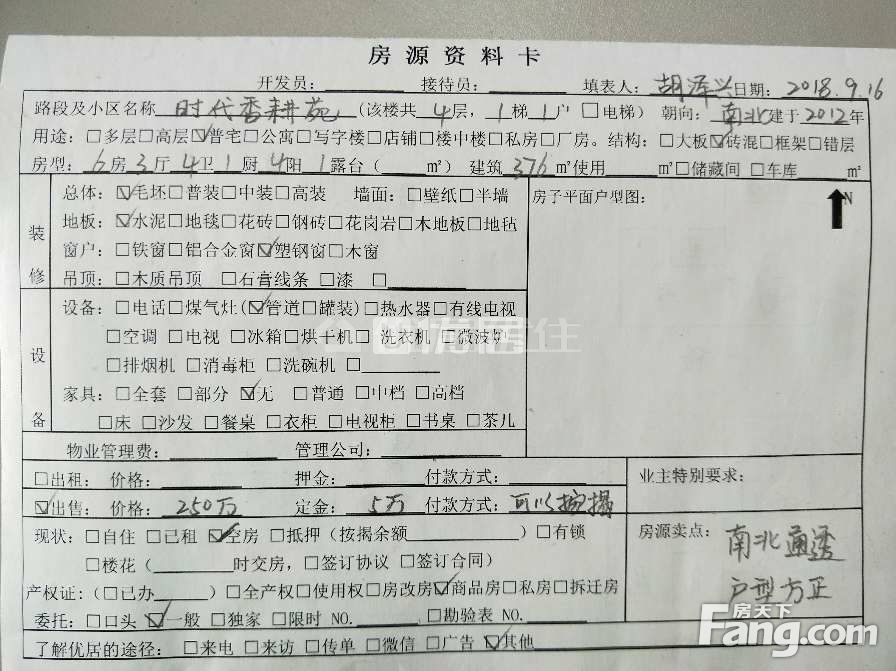 房源资料卡
开发员：　接待员：　填表人：胡泽兴 日期：2018.9.16
路段及小区名称 时代香耕苑（该楼共 4 层，1 梯 1 户 □电梯） 朝向：南北 建于 2012 年
用途：□多层□高层☑普宅□公寓□写字楼□店铺□楼中楼□私房□厂房。结构：□大板☑砖混□框架□错层
房型：6 房 3 厅 4 卫 1 厨 4 阳 1 露台（　㎡） 建筑 376 ㎡使用　㎡□储藏间 □车库　㎡
装修
总体：☑毛坯□普装□中装□高装　墙面：□壁纸□半墙
地板：☑水泥□地毯□花砖□钢砖□花岗岩□木地板□地毡
窗户：□铁窗□铝合金窗☑塑钢窗□木窗
吊顶：□木质吊顶 □石膏线条 □漆 □
房子平面户型图：
N
设备
设备：□电话□煤气灶(☑管道□罐装)□热水器□有线电视
□空调 □电视 □冰箱□烘干机□洗衣机□微波炉
□排烟机 □消毒柜 □洗碗机 □
家具：□全套 □部分 ☑无 □普通 □中档 □高档
□床 □沙发 □餐桌 □衣柜 □电视柜 □书桌 □茶几
优居住
物业管理费：　管理公司：
□出租：价格：　押金：　付款方式：
☑出售：价格：250万 定金：5万 付款方式：可以按揭
业主特别要求：
现状：□自住 □已租 ☑空房 □抵押（按揭余额　）□有锁
□楼花（　时交房，□签订协议 □签订合同）
产权证：（□已办　）□全产权□使用权□房改房☑商品房□私房□拆迁房
委托：□口头 ☑一般 □独家 □限时 NO.　□勘验表 NO.
房源卖点：南北通透
户型方正
了解优居的途径：□来电 □来访 □传单 □微信 □广告 ☑其他
房天下
Fang.com